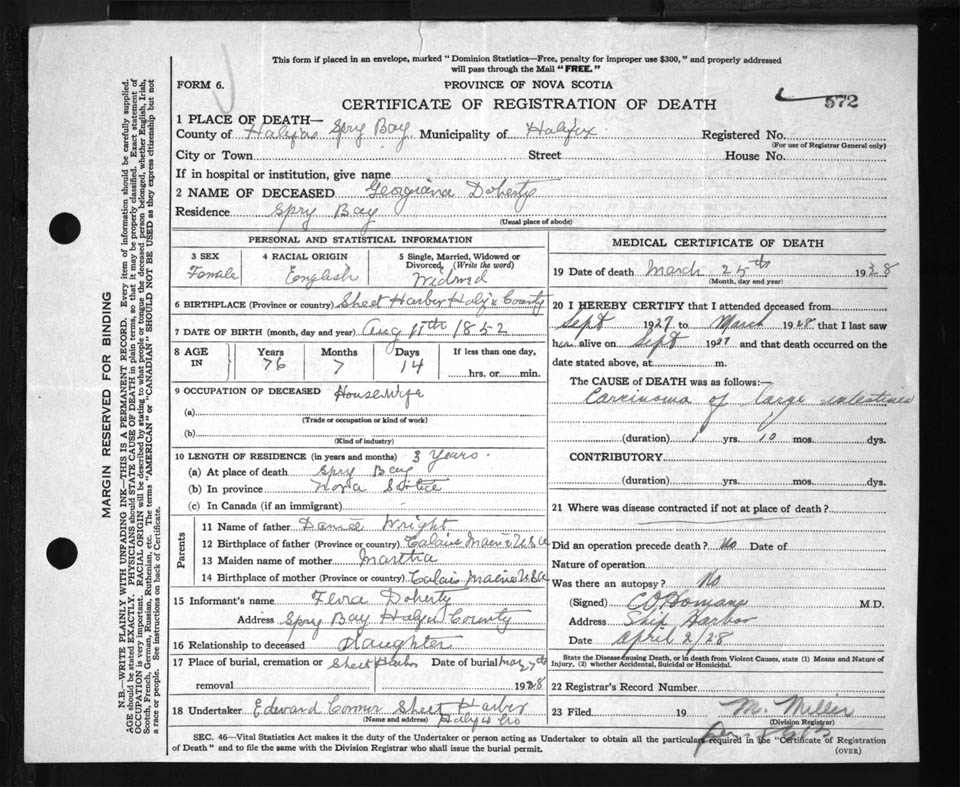 This form if placed in an envelope, marked "Dominion Statistics—Free, penalty for improper use $300," and properly addressed
will pass through the Mail "FREE."
FORM 6.
PROVINCE OF NOVA SCOTIA
CERTIFICATE OF REGISTRATION OF DEATH
572
1 PLACE OF DEATH—
County of Halifax Spry Bay Municipality of Halifax. Registered No.
(For use of Registrar General only)
City or Town Street House No.
If in hospital or institution, give name
2 NAME OF DECEASED Georgiana Doherty
Residence Spry Bay
(Usual place of abode)
PERSONAL AND STATISTICAL INFORMATION
3 SEX 4 RACIAL ORIGIN 5 Single, Married, Widowed or
Divorced, (Write the word)
Female English Widowd
6 BIRTHPLACE (Province or country) Sheet Harbor Halfx County
7 DATE OF BIRTH (month, day and year) Aug 11th 1852
8 AGE IN Years Months Days If less than one day,
76 7 14 hrs. or min.
9 OCCUPATION OF DECEASED Housewife
(a)
(Trade or occupation or kind of work)
(b)
(Kind of industry)
10 LENGTH OF RESIDENCE (in years and months) 3 Years.
(a) At place of death Spry Bay
(b) In province Nova Scotia
(c) In Canada (if an immigrant)
Parents
11 Name of father Wright
12 Birthplace of father (Province or country) Calais Maine USA
13 Maiden name of mother Martha
14 Birthplace of mother (Province or country) Calais Maine USA
15 Informant's name Doherty
Address Spry Bay Halfx County
16 Relationship to deceased Daughter
17 Place of burial, cremation or Sheet Harbor Date of burial
removal 1928
18 Undertaker Edward Conner Sheet Harbor
(Name and address) Halfx Co
MEDICAL CERTIFICATE OF DEATH
19 Date of death March 25th 1928
(Month, day and year)
20 I HEREBY CERTIFY that I attended deceased from
Sept 1927 to March 1928 that I last saw
her alive on Sept 1927 and that death occurred on the
date stated above, at m.
The CAUSE of DEATH was as follows:—
Carcinoma of large intestines
(duration) 1 yrs. 10 mos. dys.
CONTRIBUTORY
(duration) yrs. mos. dys.
21 Where was disease contracted if not at place of death?
Did an operation precede death? No Date of
Nature of operation
Was there an autopsy? No
(Signed) M.D.
Address Ship Harbor
Date April 2/28
State the Disease causing Death, or in death from Violent Causes, state (1) Means and Nature of
Injury, (2) whether Accidental, Suicidal or Homicidal.
22 Registrar's Record Number
23 Filed 19 M. Miller
(Division Registrar)
SEC. 46—Vital Statistics Act makes it the duty of the Undertaker or person acting as Undertaker to obtain all the particulars required in the "Certificate of Registration
of Death" and to file the same with the Division Registrar who shall issue the burial permit.
(OVER)
MARGIN RESERVED FOR BINDING
N.B.—WRITE PLAINLY WITH UNFADING INK—THIS IS A PERMANENT RECORD. Every item of information should be carefully supplied.
AGE should be stated EXACTLY. PHYSICIANS should STATE CAUSE OF DEATH in plain terms, so that it may be properly classified. Exact statement of
OCCUPATION is very important. RACIAL ORIGIN will be described by stating to what people or tongue the deceased person belonged, whether English, Irish,
Scotch, French, German, Russian, Ruthenian, etc. The terms "AMERICAN" or "CANADIAN" SHOULD NOT BE USED as they express citizenship but not
a race or people. See instructions on back of Certificate.